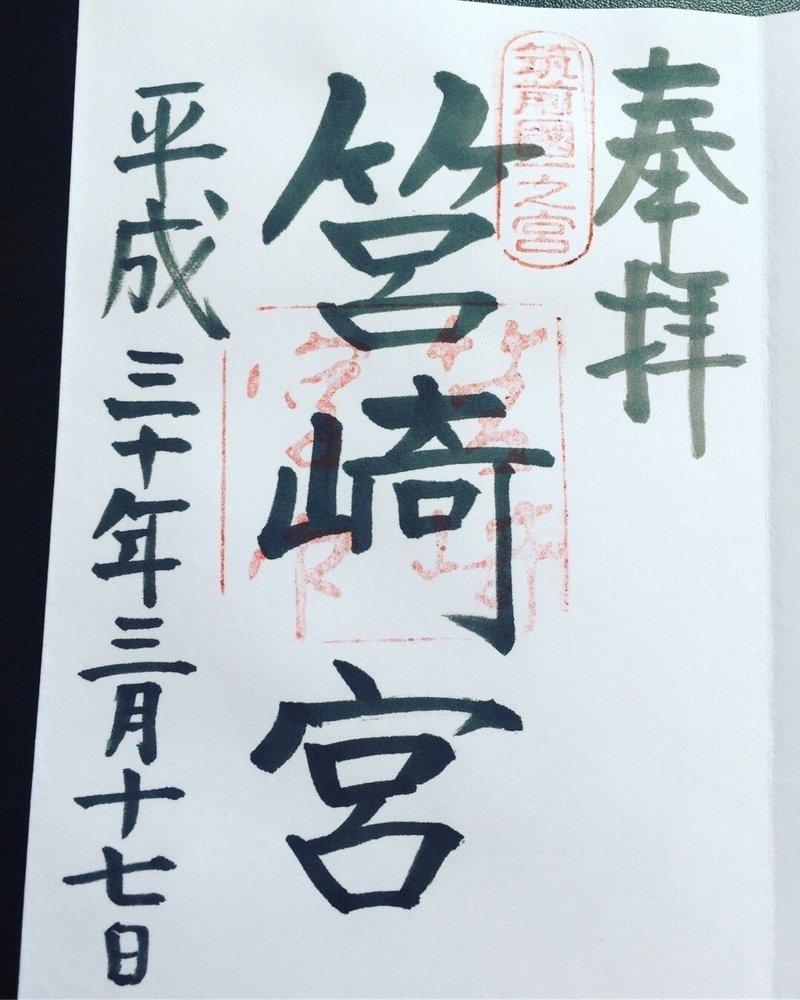 奉拝
筑前國一之宮
筥崎宮
筥崎
宮印
平成三十年三月十七日